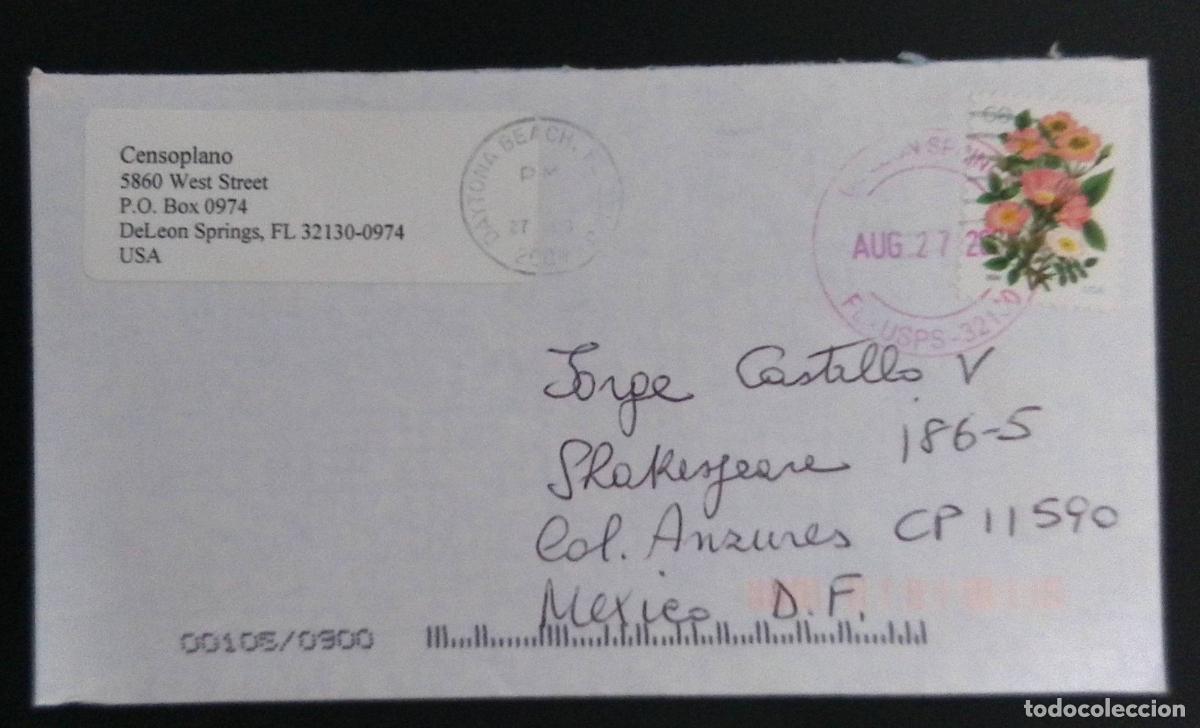 Censoplano
5860 West Street
P.O. Box 0974
DeLeon Springs, FL 32130-0974
USA
DAYTONA BEACH, F
PM
27
200
60
AUG 27 20
FL. USPS-32130
USA
Jorge Castillo V
Shakespeare 186-5
Col. Anzures CP 11590
Mexico D.F.
00105/0900
todocoleccion